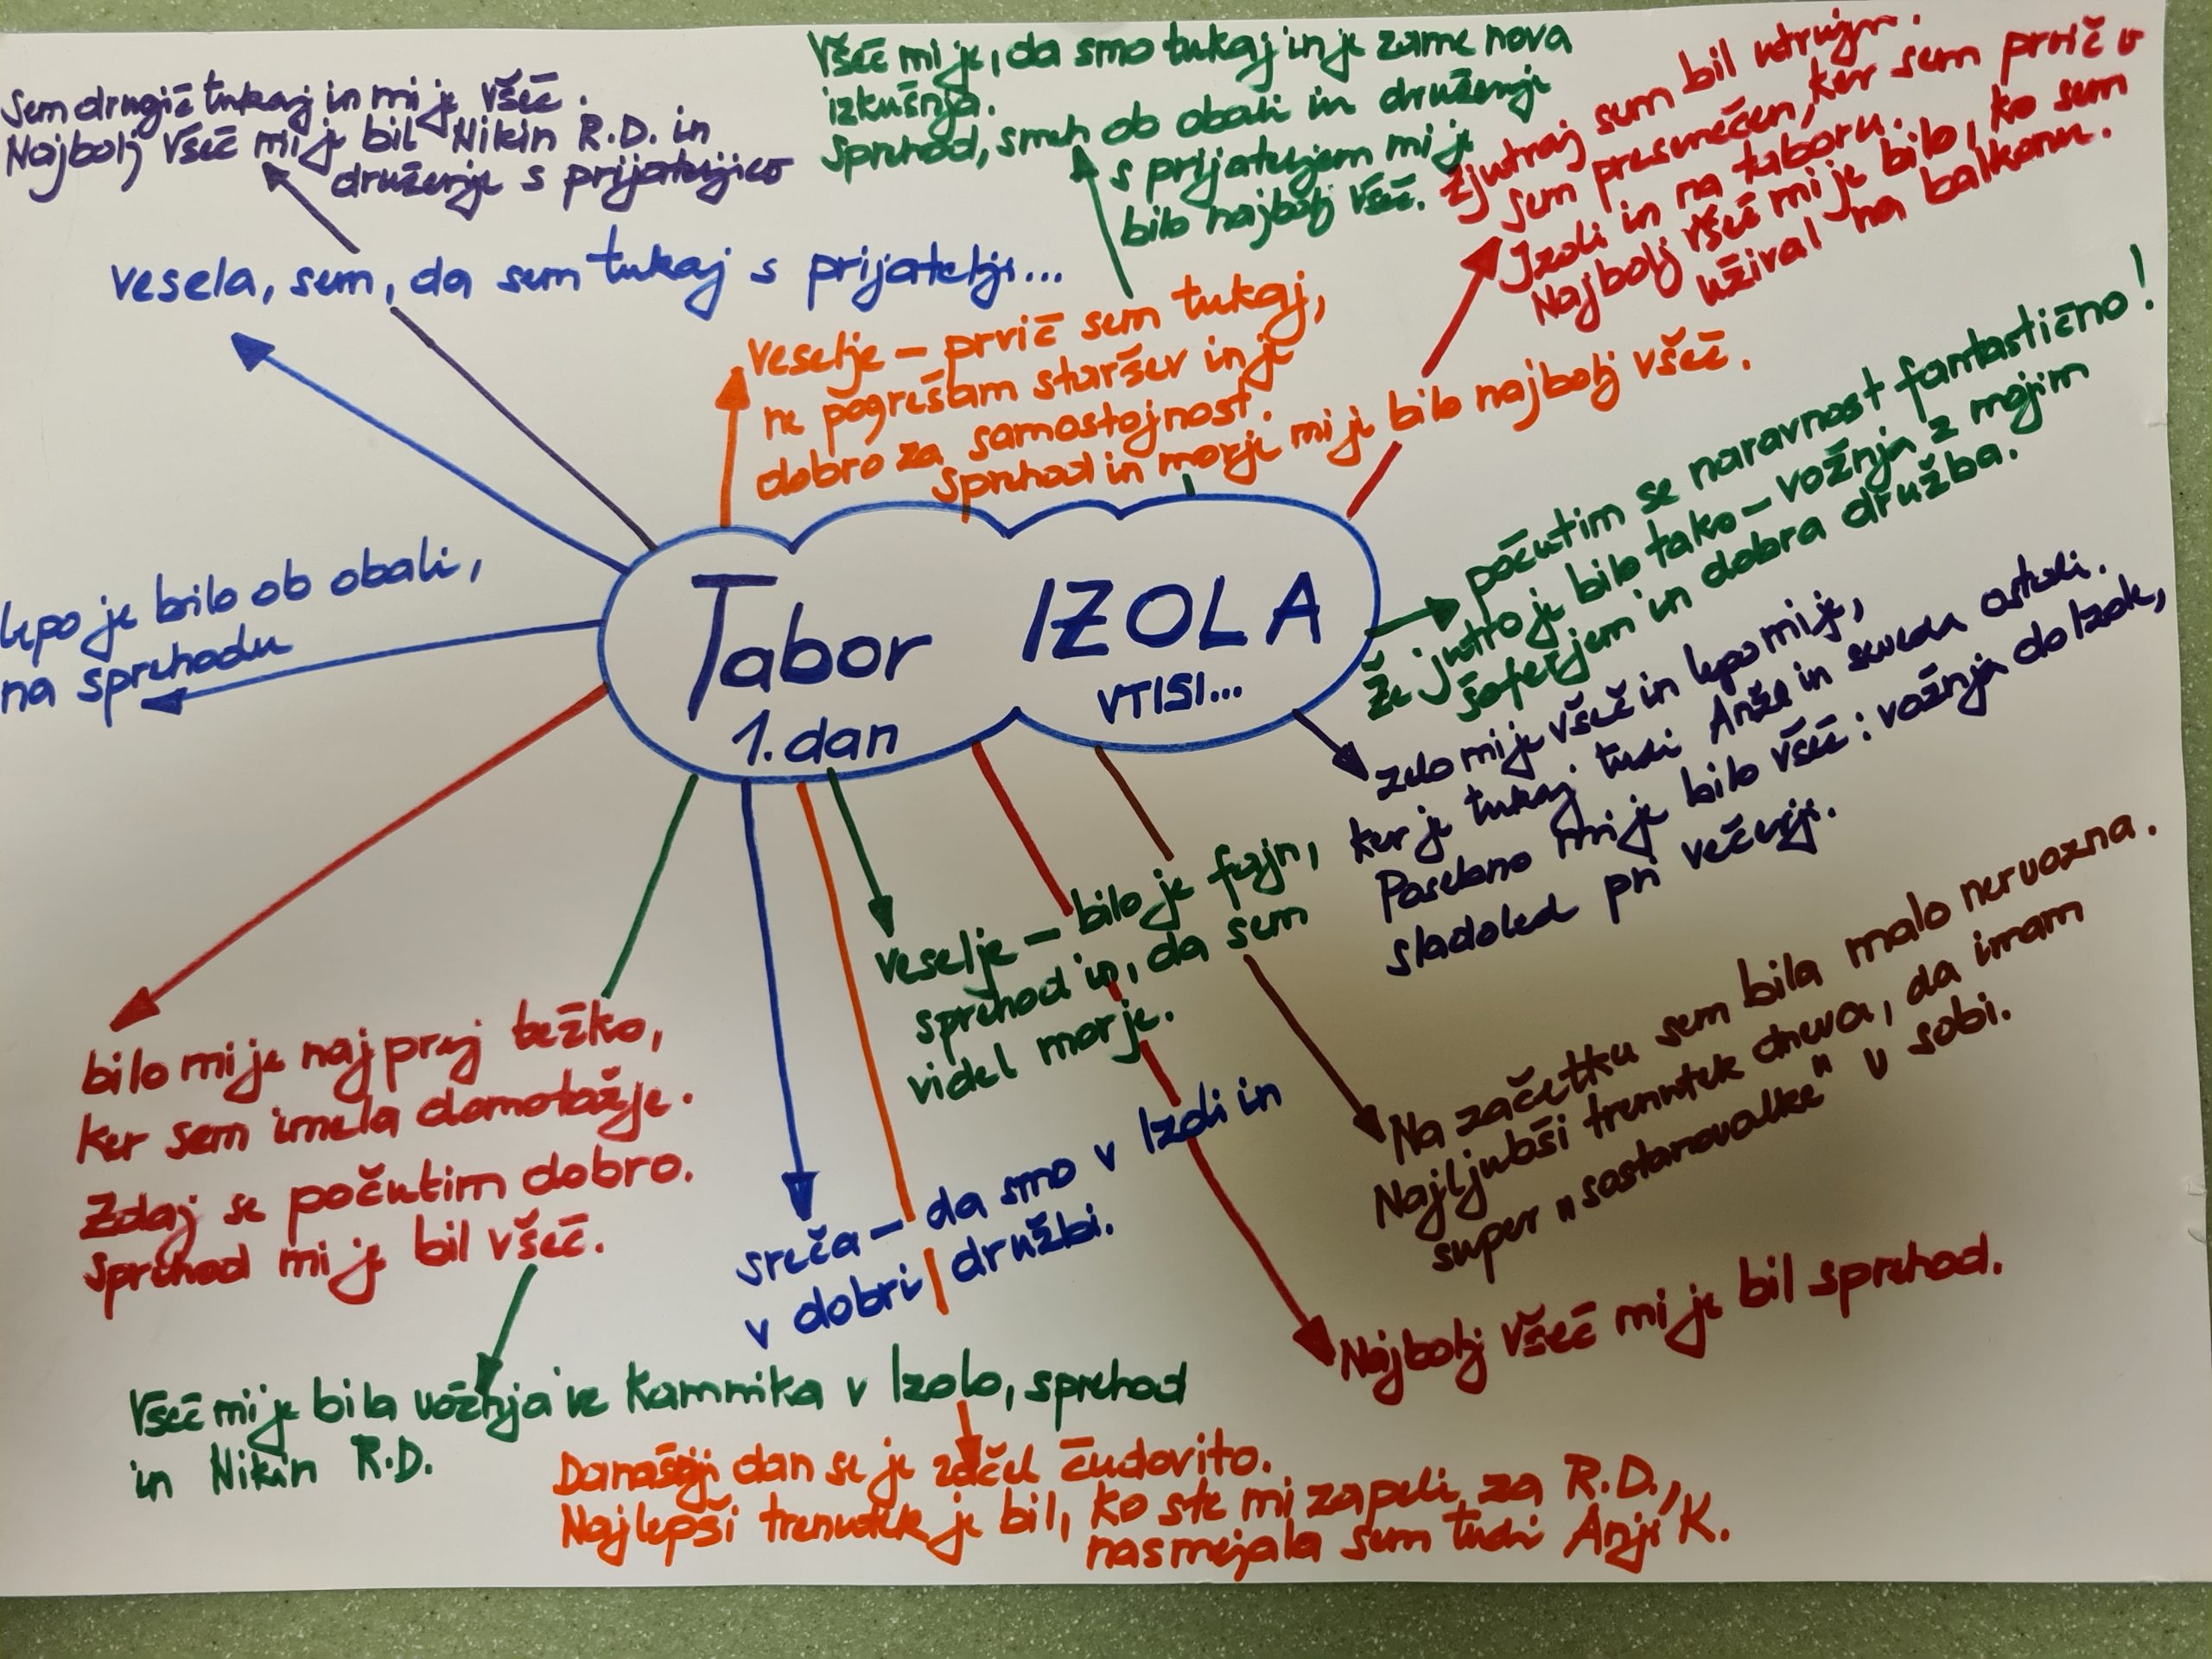 Sem drugič tukaj in mi je všeč.
Najbolj všeč mi je bil Nikin R.D. in
druženje s prijateljico
vesela, sem, da sem tukaj s prijatelji...
Všeč mi je, da smo tukaj in je zame nova
izkušnja.
Sprehod, smeh ob obali in druženje
s prijateljem mi je
bilo najbolj všeč.
Zjutraj sem bil utrujen.
Sem presenečen, ker sem prvič v
Izoli in na taboru.
Najbolj všeč mi je bilo, ko sem
užival na balkonu.
Veselje - prvič sem tukaj,
ne pogrešam staršev in je
dobro za samostojnost.
Sprehod in morje mi je bilo najbolj všeč.
počutim se naravnost fantastično!
Že jutro je bilo tako - vožnja z mojim
šoferjem in dobra družba.
lepo je bilo ob obali,
na sprehodu
Tabor IZOLA
1. dan VTISI...
zelo mi je všeč in lepo mi je,
ker je tukaj tudi Anže in seveda ostali.
Posebno mi je bilo všeč: vožnja do Izole,
sladoled pri večerji.
veselje - bilo je fajn,
sprehod in, da sem
videl morje.
Na začetku sem bila malo nervozna.
Najljubši trenutek dneva, da imam
super "sostanovalke" v sobi.
bilo mi je najprej težko,
ker sem imela domotožje.
Zdaj se počutim dobro.
Sprehod mi je bil všeč.
sreča - da smo v Izoli in
v dobri družbi.
Najbolj všeč mi je bil sprehod.
Všeč mi je bila vožnja iz Kamnika v Izolo, sprehod
in Nikin R.D.
Današnji dan se je začel čudovito.
Najlepši trenutek je bil, ko ste mi zapeli za R.D.,
nasmejala sem tudi Anji K.